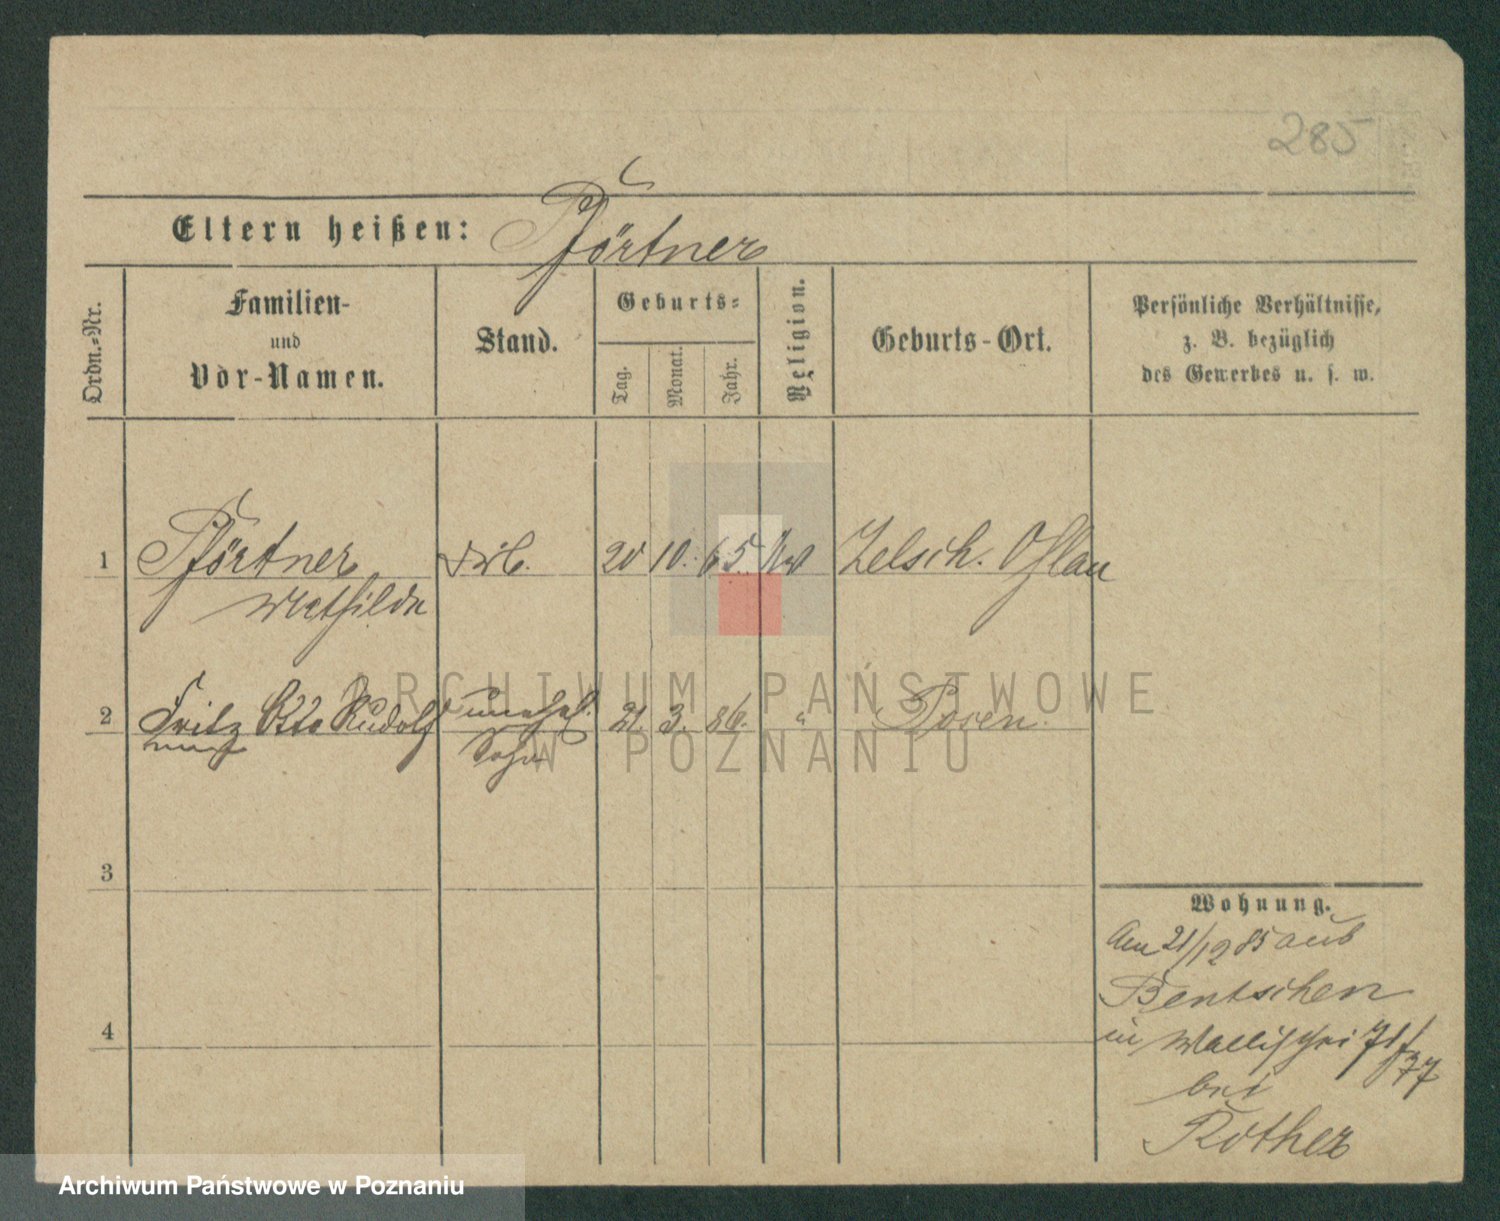 285
Eltern heißen: Pförtner
Ordn.-Nr.
Familien-
und
Vor-Namen.
Stand.
Geburts-
Tag.
Monat.
Jahr.
Religion.
Geburts-Ort.
Persönliche Verhältnisse,
z. B. bezüglich
des Gewerbes u. s. w.
1 Pförtner 20 10. 65. Zelsch. Ohlau
Mathilde
2 Fritz Otto Rudolf unehel. 21. 3. 86. " Posen.
Sohn
3
4
Wohnung.
Am 21/12 85 aus
Bentschen
in Wallischei
bei
Rother
ARCHIWUM PAŃSTWOWE
W POZNANIU
Archiwum Państwowe w Poznaniu